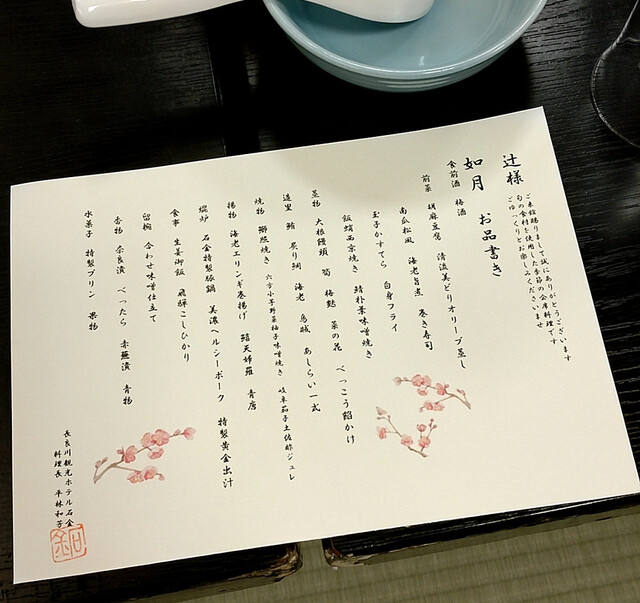 辻様
ご来館賜りまして誠にありがとうございます
旬の食材を使用した季節の会席料理です
ごゆっくりとお楽しみくださいませ
如月 お品書き
食前酒 梅酒
前菜 胡麻豆腐 清流美どりオリーブ蒸し
南瓜松風 海老旨煮 巻き寿司
玉子かすてら 白身フライ
飯蛸西京焼き 鯖朴葉味噌焼き
蒸物 大根饅頭 筍 梅麩 菜の花 べっこう餡かけ
造里 鮪 炙り鯛 海老 烏賊 あしらい一式
焼物 鰤照焼き 六方小芋野菜柚子味噌焼き 岐阜茄子土佐酢ジュレ
揚物 海老エリンギ巻揚げ 天婦羅 青唐
焜炉 石金特製豚鍋 美濃ヘルシーポーク 特製黄金出汁
食事 生姜御飯 飛騨こしひかり
留椀 合わせ味噌仕立て
香物 奈良漬 べったら 赤蕪漬 青物
水菓子 特製プリン 果物
長良川観光ホテル石金
料理長 平林和芳
石金